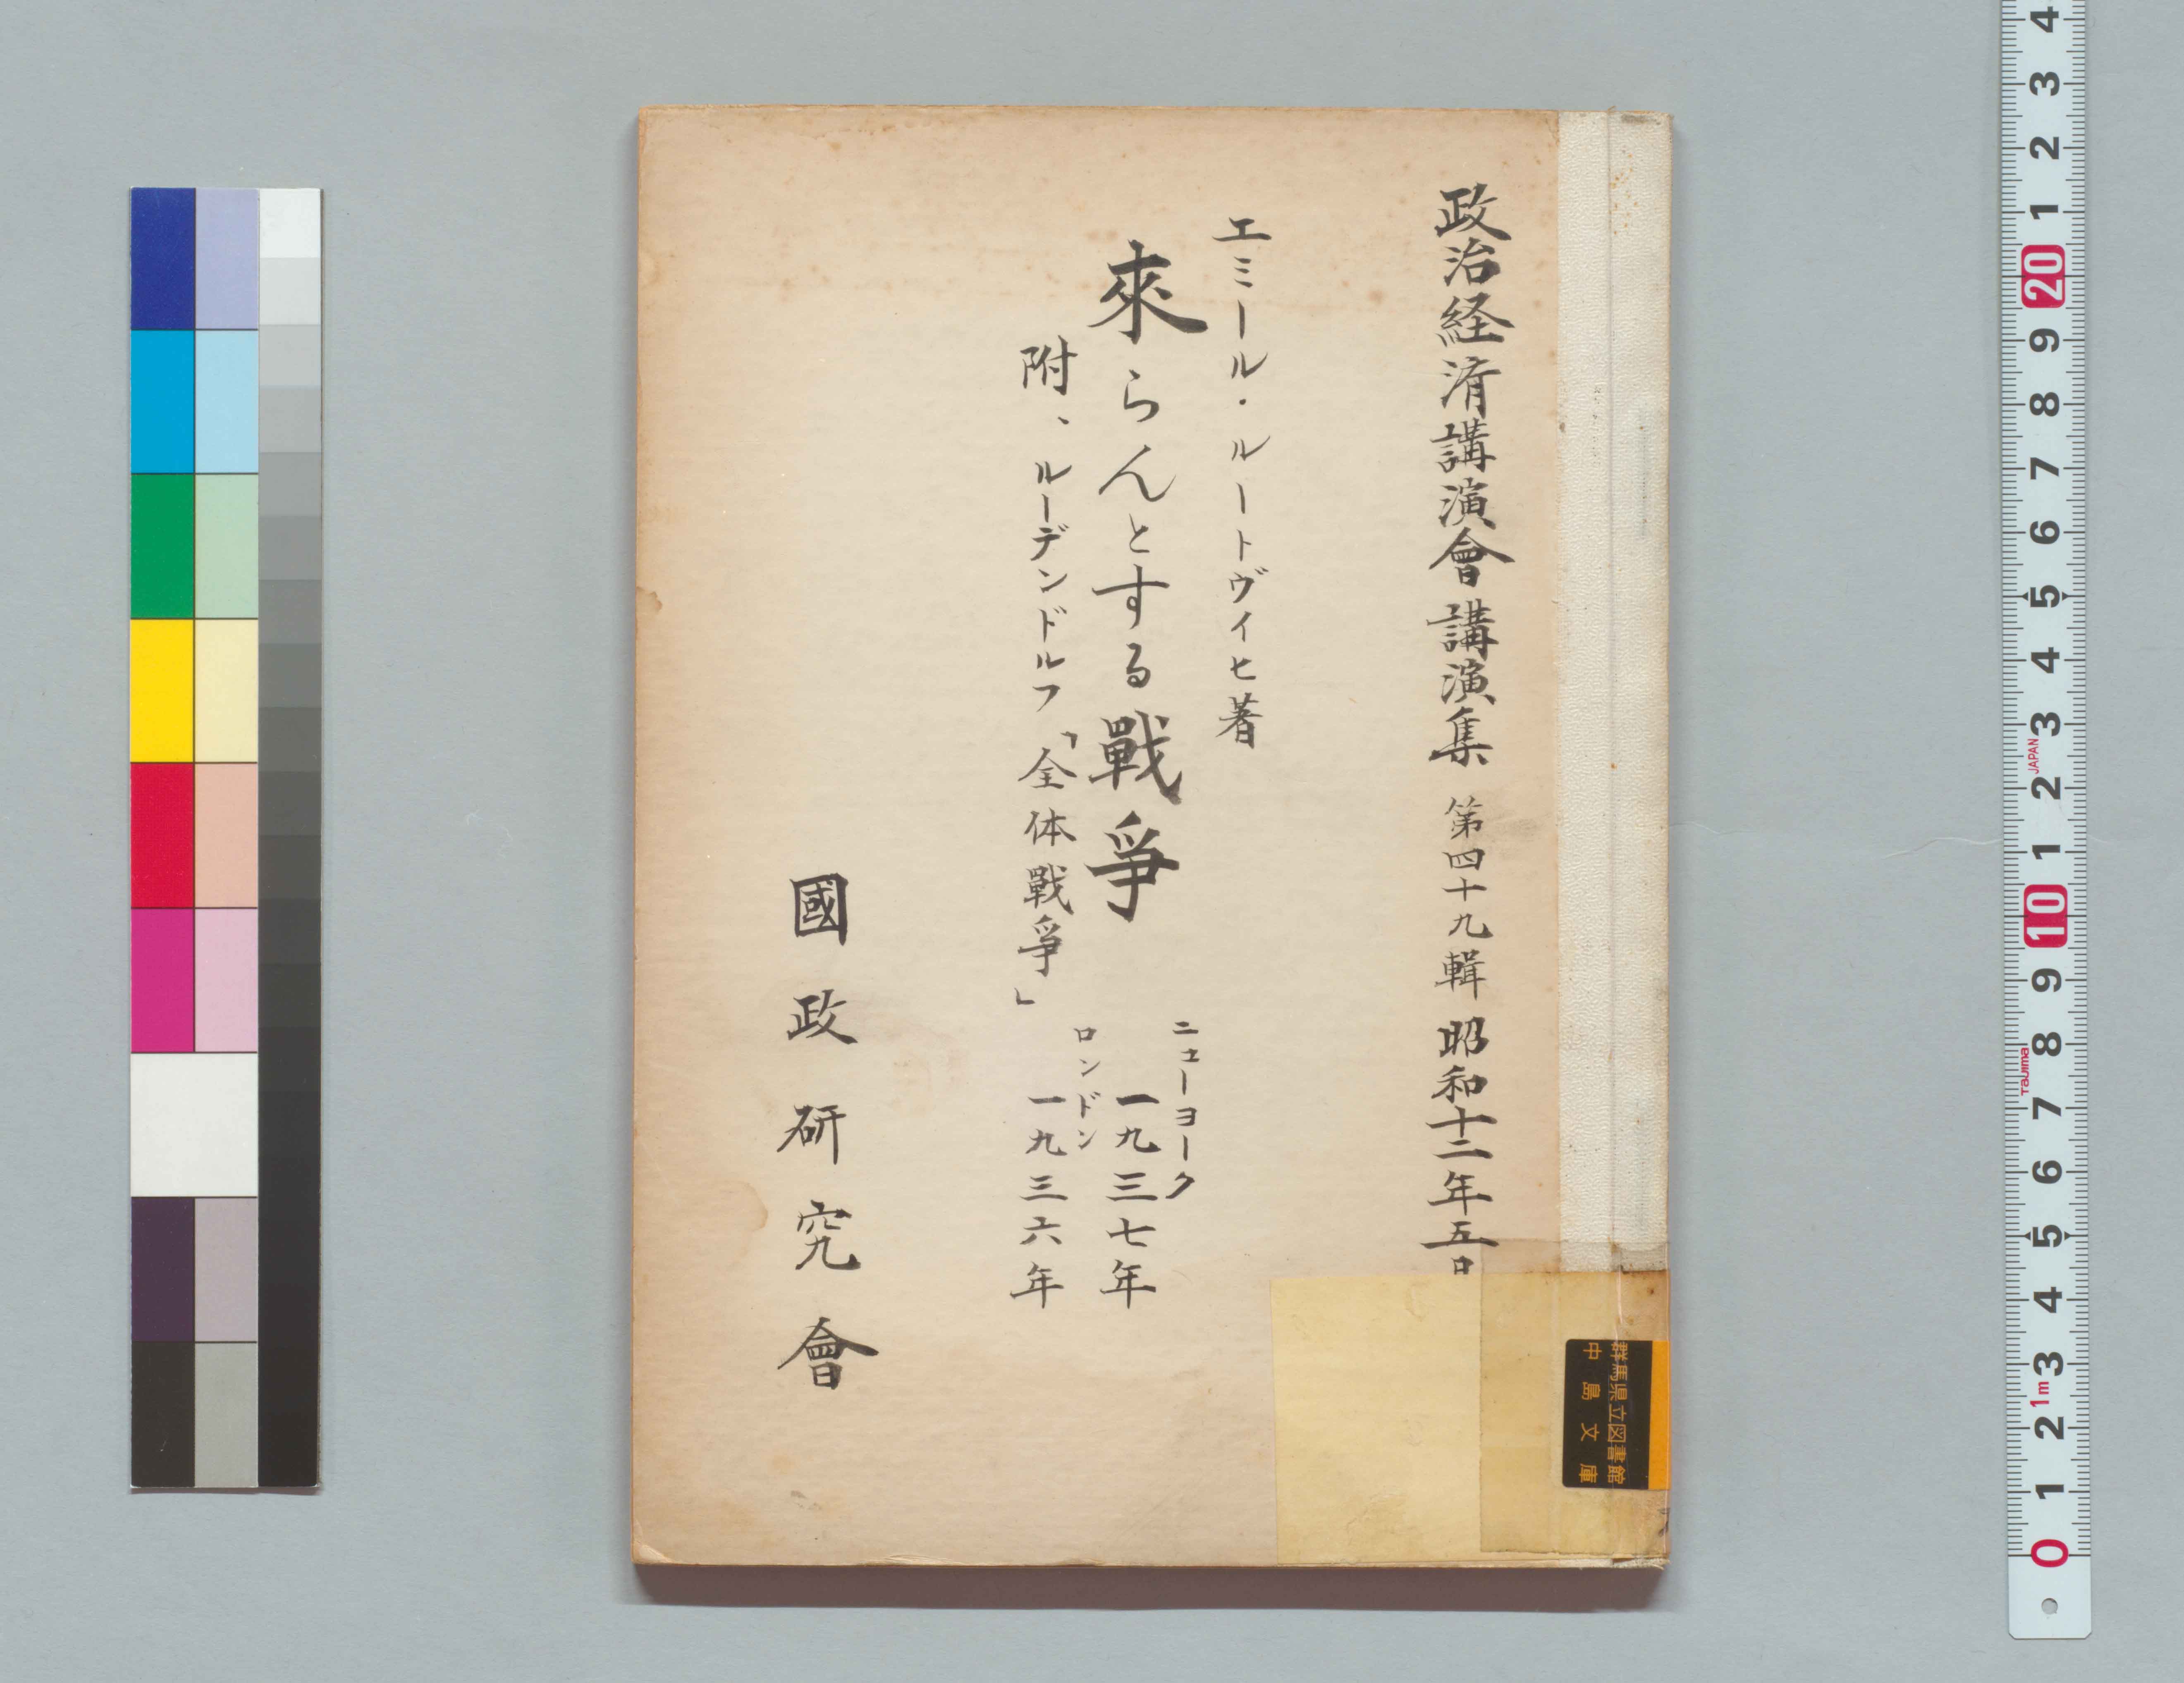 政治経済講演會講演集 第四十九輯 昭和十二年五日
エミール・ルートヴィヒ著
來らんとする戰爭
ニューヨーク
一九三七年
附、ルーデンドルフ「全体戰爭」
ロンドン
一九三六年
國政研究會
群馬県立図書館
中島文庫
4
3
2
1
20
9
8
7
6
5
4
3
JAPAN
2
1
10
9
8
Tajima
7
6
5
4
3
1m
2
1
0